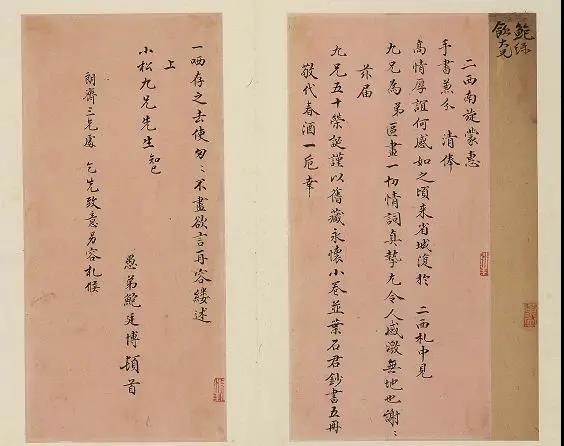 鮑綠
飲大兄
二西南旋蒙惠
手書兼分 清俸
高情厚誼何感如之頃来省城復於 二西札中見
九兄為弟區畫一切情詞真摯尤令人感激無地也謝〻
茲届
九兄五十榮誕謹以舊藏永懷小卷並葉石君鈔書五冊
敬代春酒一巵幸
一哂存之去使匆〻不盡欲言再容縷述
上
小松九兄先生知己
朗齋三兄處 乞先致意另容札候
愚弟鮑廷博頓首